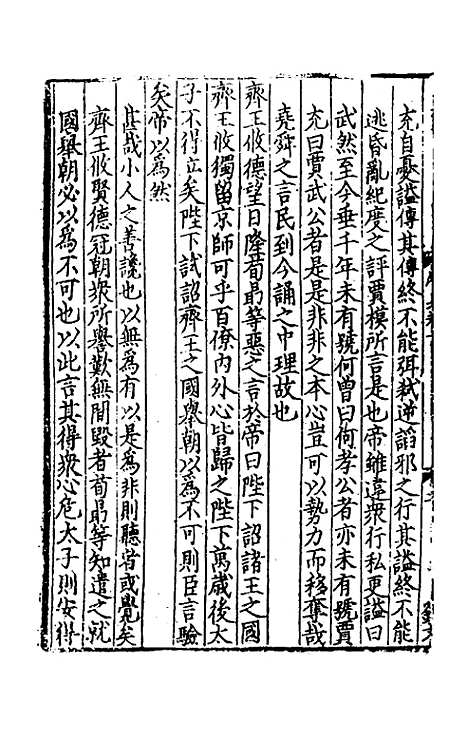 充自憂謚傳其傳終不能弭弒逆謟邪之行其謚終不能
逃昏亂紀度之評賈模所言是也帝雖違衆行私更謚曰
武然至今垂千年未有號何曾曰何孝公者亦未有號賈
充曰賈武公者是是非非之本心豈可以勢力而移奪哉
堯舜之言民到今誦之中理故也
齊王攸德望日隆荀勗等惡之言於帝曰陛下詔諸王之國
齊王攸獨留京師可乎百僚內外心皆歸之陛下萬歲後太
子不得立矣陛下試詔齊王之國舉朝以為不可則臣言驗
矣帝以為然
甚哉小人之善讒也以無為有以是為非則聽者或覺矣
齊王攸賢德冠朝衆所譽歎無間毀者荀勗等知遣之就
國舉朝必以為不可也以此言其得衆心危太子則安得